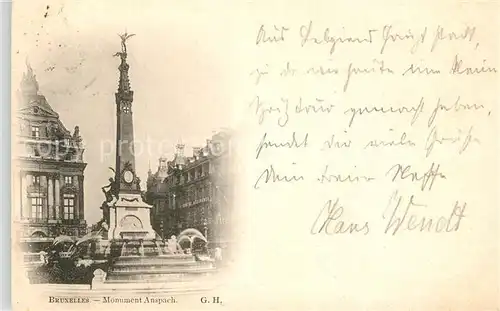 Aus Belgiens Haupt Stadt,
zu der wir heute eine kleine
Spritztour gemacht haben,
sendet dir viele Grüße
Dein treuer Neffe
Hans Wendt
BRUXELLES. — Monument Anspach. G. H.